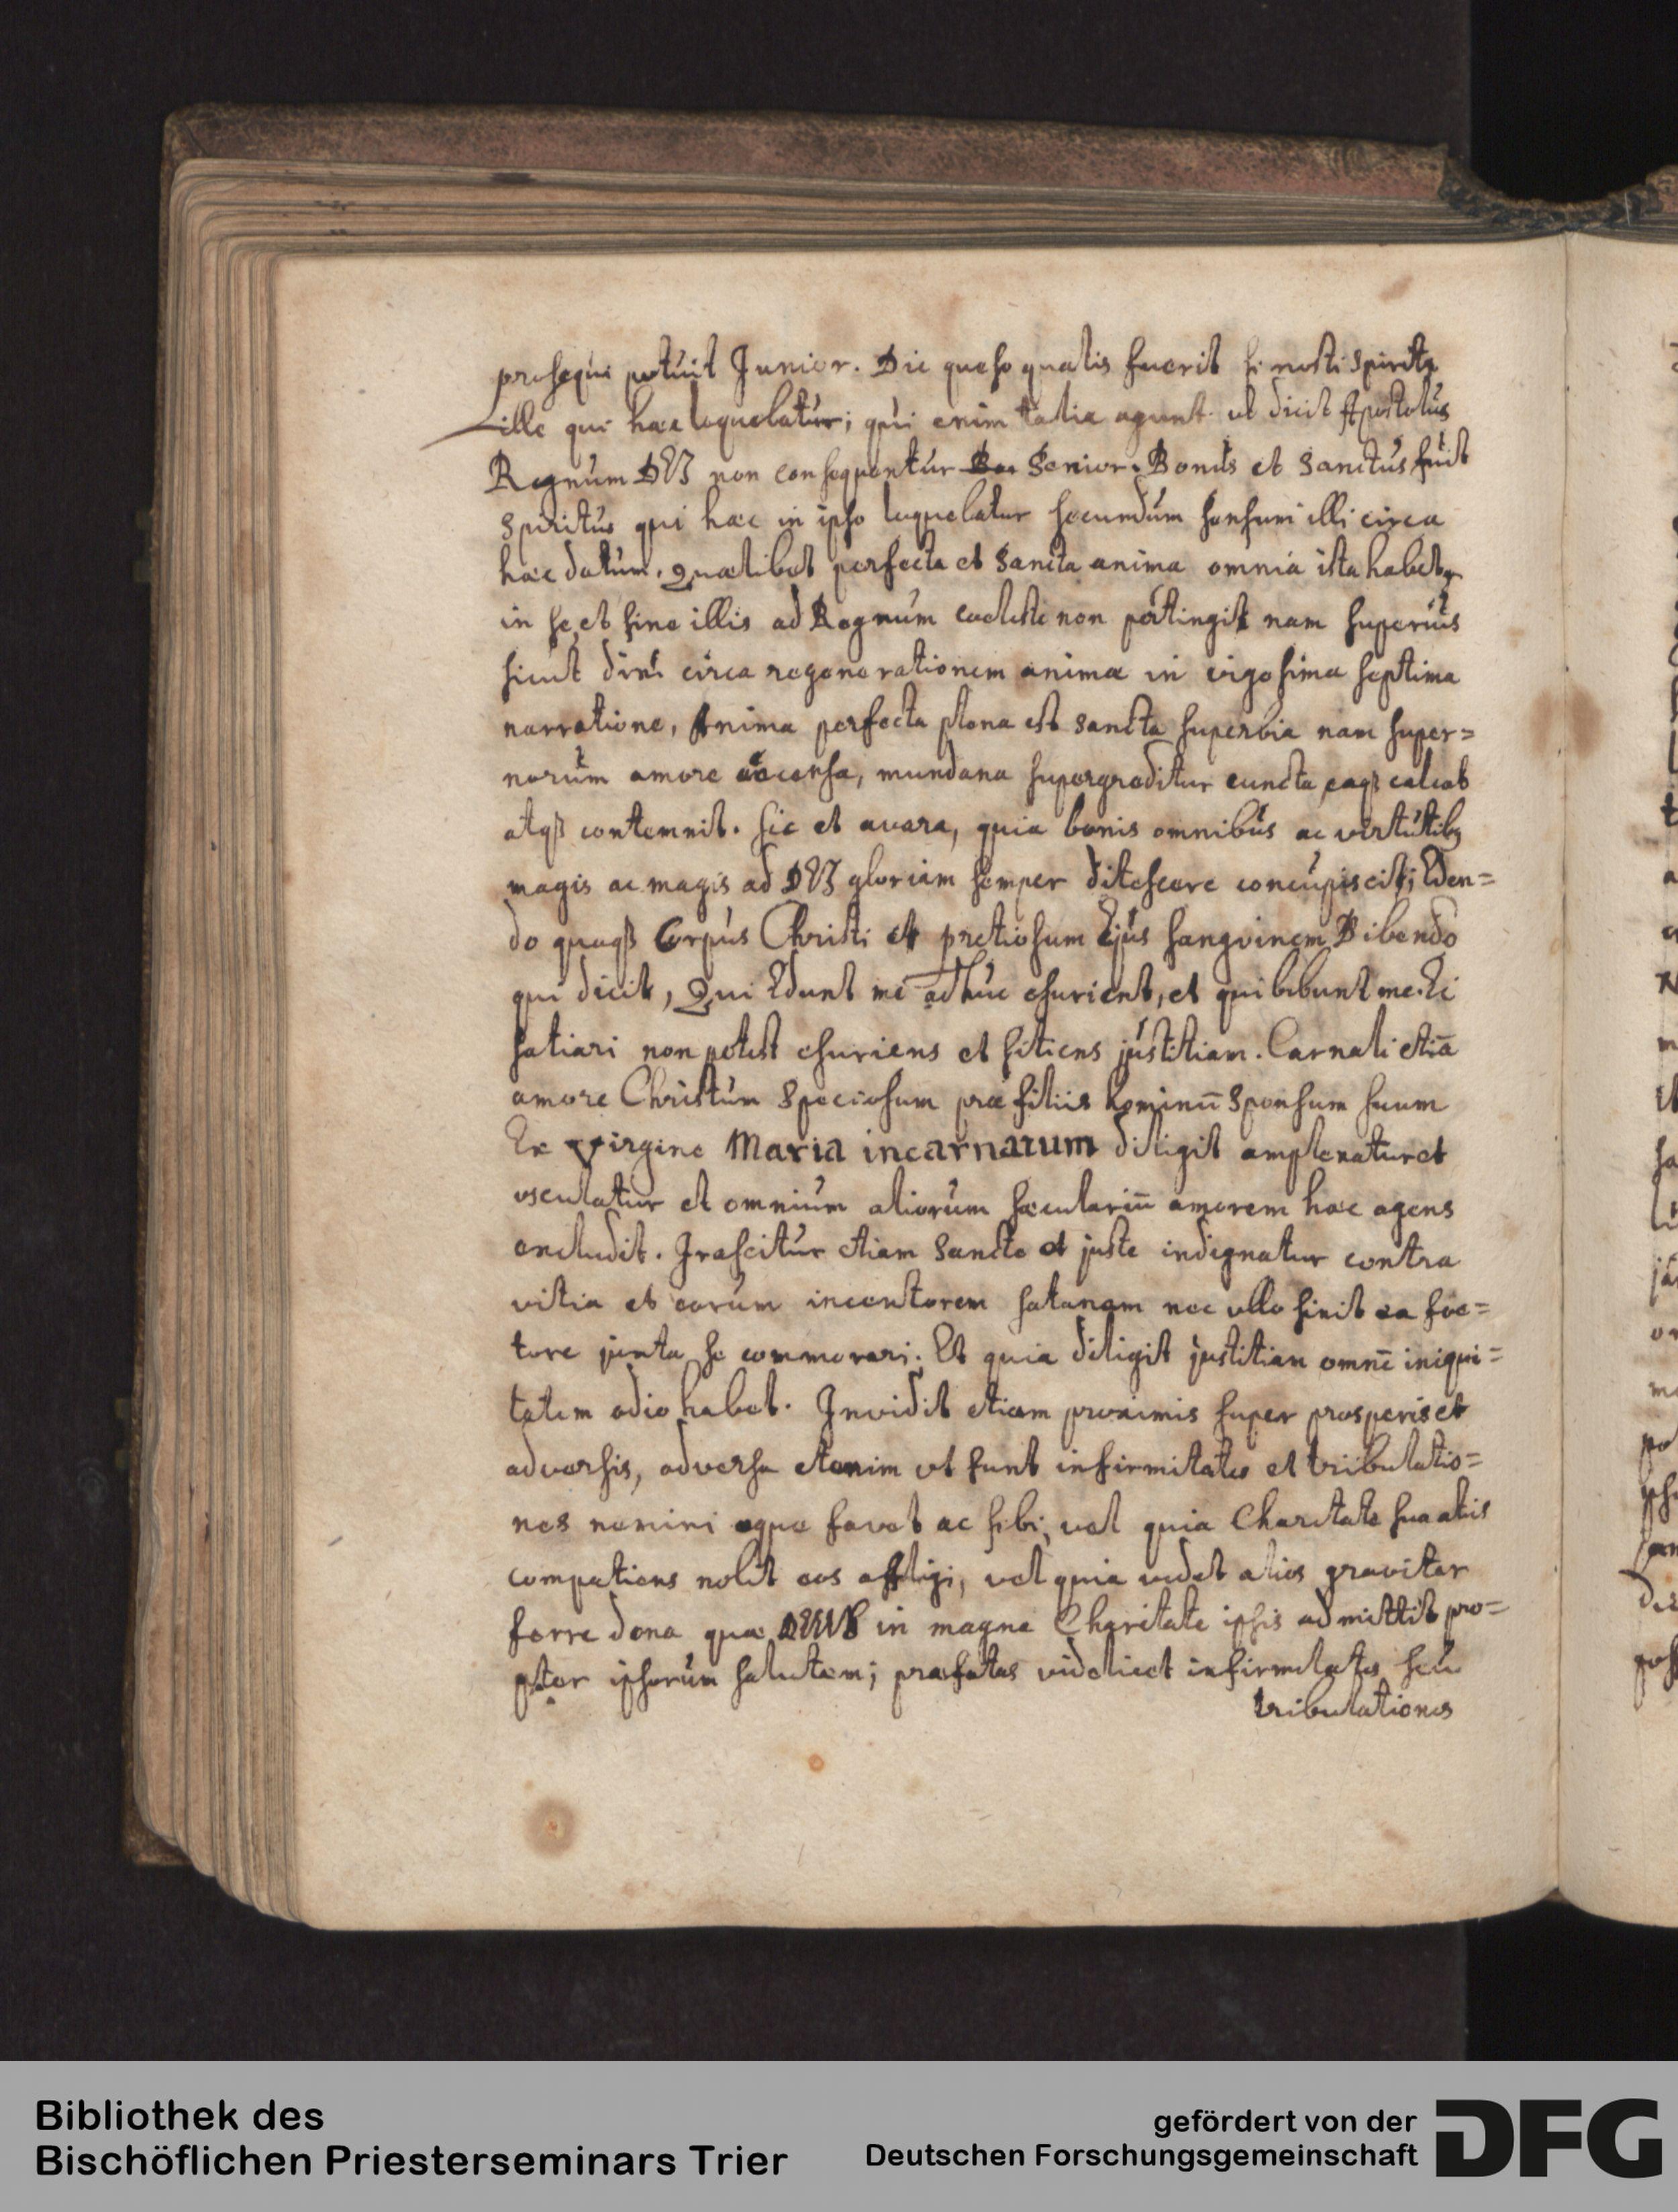 prosequi potuit Junior. Dic queso qualis fuerit si nosti Spiritꝫ
ille qui hæc loquebatur; qui enim talia agunt ut dicit Apostolus
Regnum DEI non consequentur Bon Senior. Bonus et Sanctus fuit
Spiritus qui hæc in ipso loquebatur secundum sensum illi circa
hæc datum. Quælibet perfecta et Sancta anima omnia ista habet
in se, et sine illis ad Regnum cœleste non pertingit nam superius
sicut dixi circa regenerationem animæ in vigesima septima
narratione, Anima perfecta plena est sancta superbia nam super=
norum amore accensa, mundana supergreditur cuncta eaqꝫ calcat
atqꝫ contemnit. sic et avara, quia bonis omnibus ac virtutibꝫ
magis ac magis ad DEI gloriam semper ditescere concupiscit; Eden=
do quoqꝫ Corpus Christi et pretiosum Ejus sangvinem Bibendo
qui dicit, Qui Edunt me adhuc esurient, et qui bibunt me. Ei
satiari non potest esuriens et sitiens justitiam. Carnali etiā
amore Christum Speciosum præ filiis hominū Sponsum suum
Ex virgine Maria incarnatum diligit amplexatur et
osculatur et omnium aliorum sæculariū amorem hæc agens
excludit. Irascitur etiam Sancte et juste indignatur contra
vitia et eorum incentorem satanam nec ullo sinit ea foe=
tore juxta se commorari. Et quia diligit justitiam omnē iniqui=
tatem odio habet. Invidit etiam proximis super prosperis et
adversis, adversa etenim ut sunt infirmitates et tribulatio=
nes nemini æque favet ac sibi; vel quia Charitate sua aliis
compatiens nolit eos affligi, vel quia videt alios graviter
ferre dona quæ DEUS in magna Charitate ipsis admittit pro=
pter ipsorum salutem; præfatas videlicet infirmitates seu
tribulationes
Bibliothek des
Bischöflichen Priesterseminars Trier
gefördert von der
Deutschen Forschungsgemeinschaft
DFG